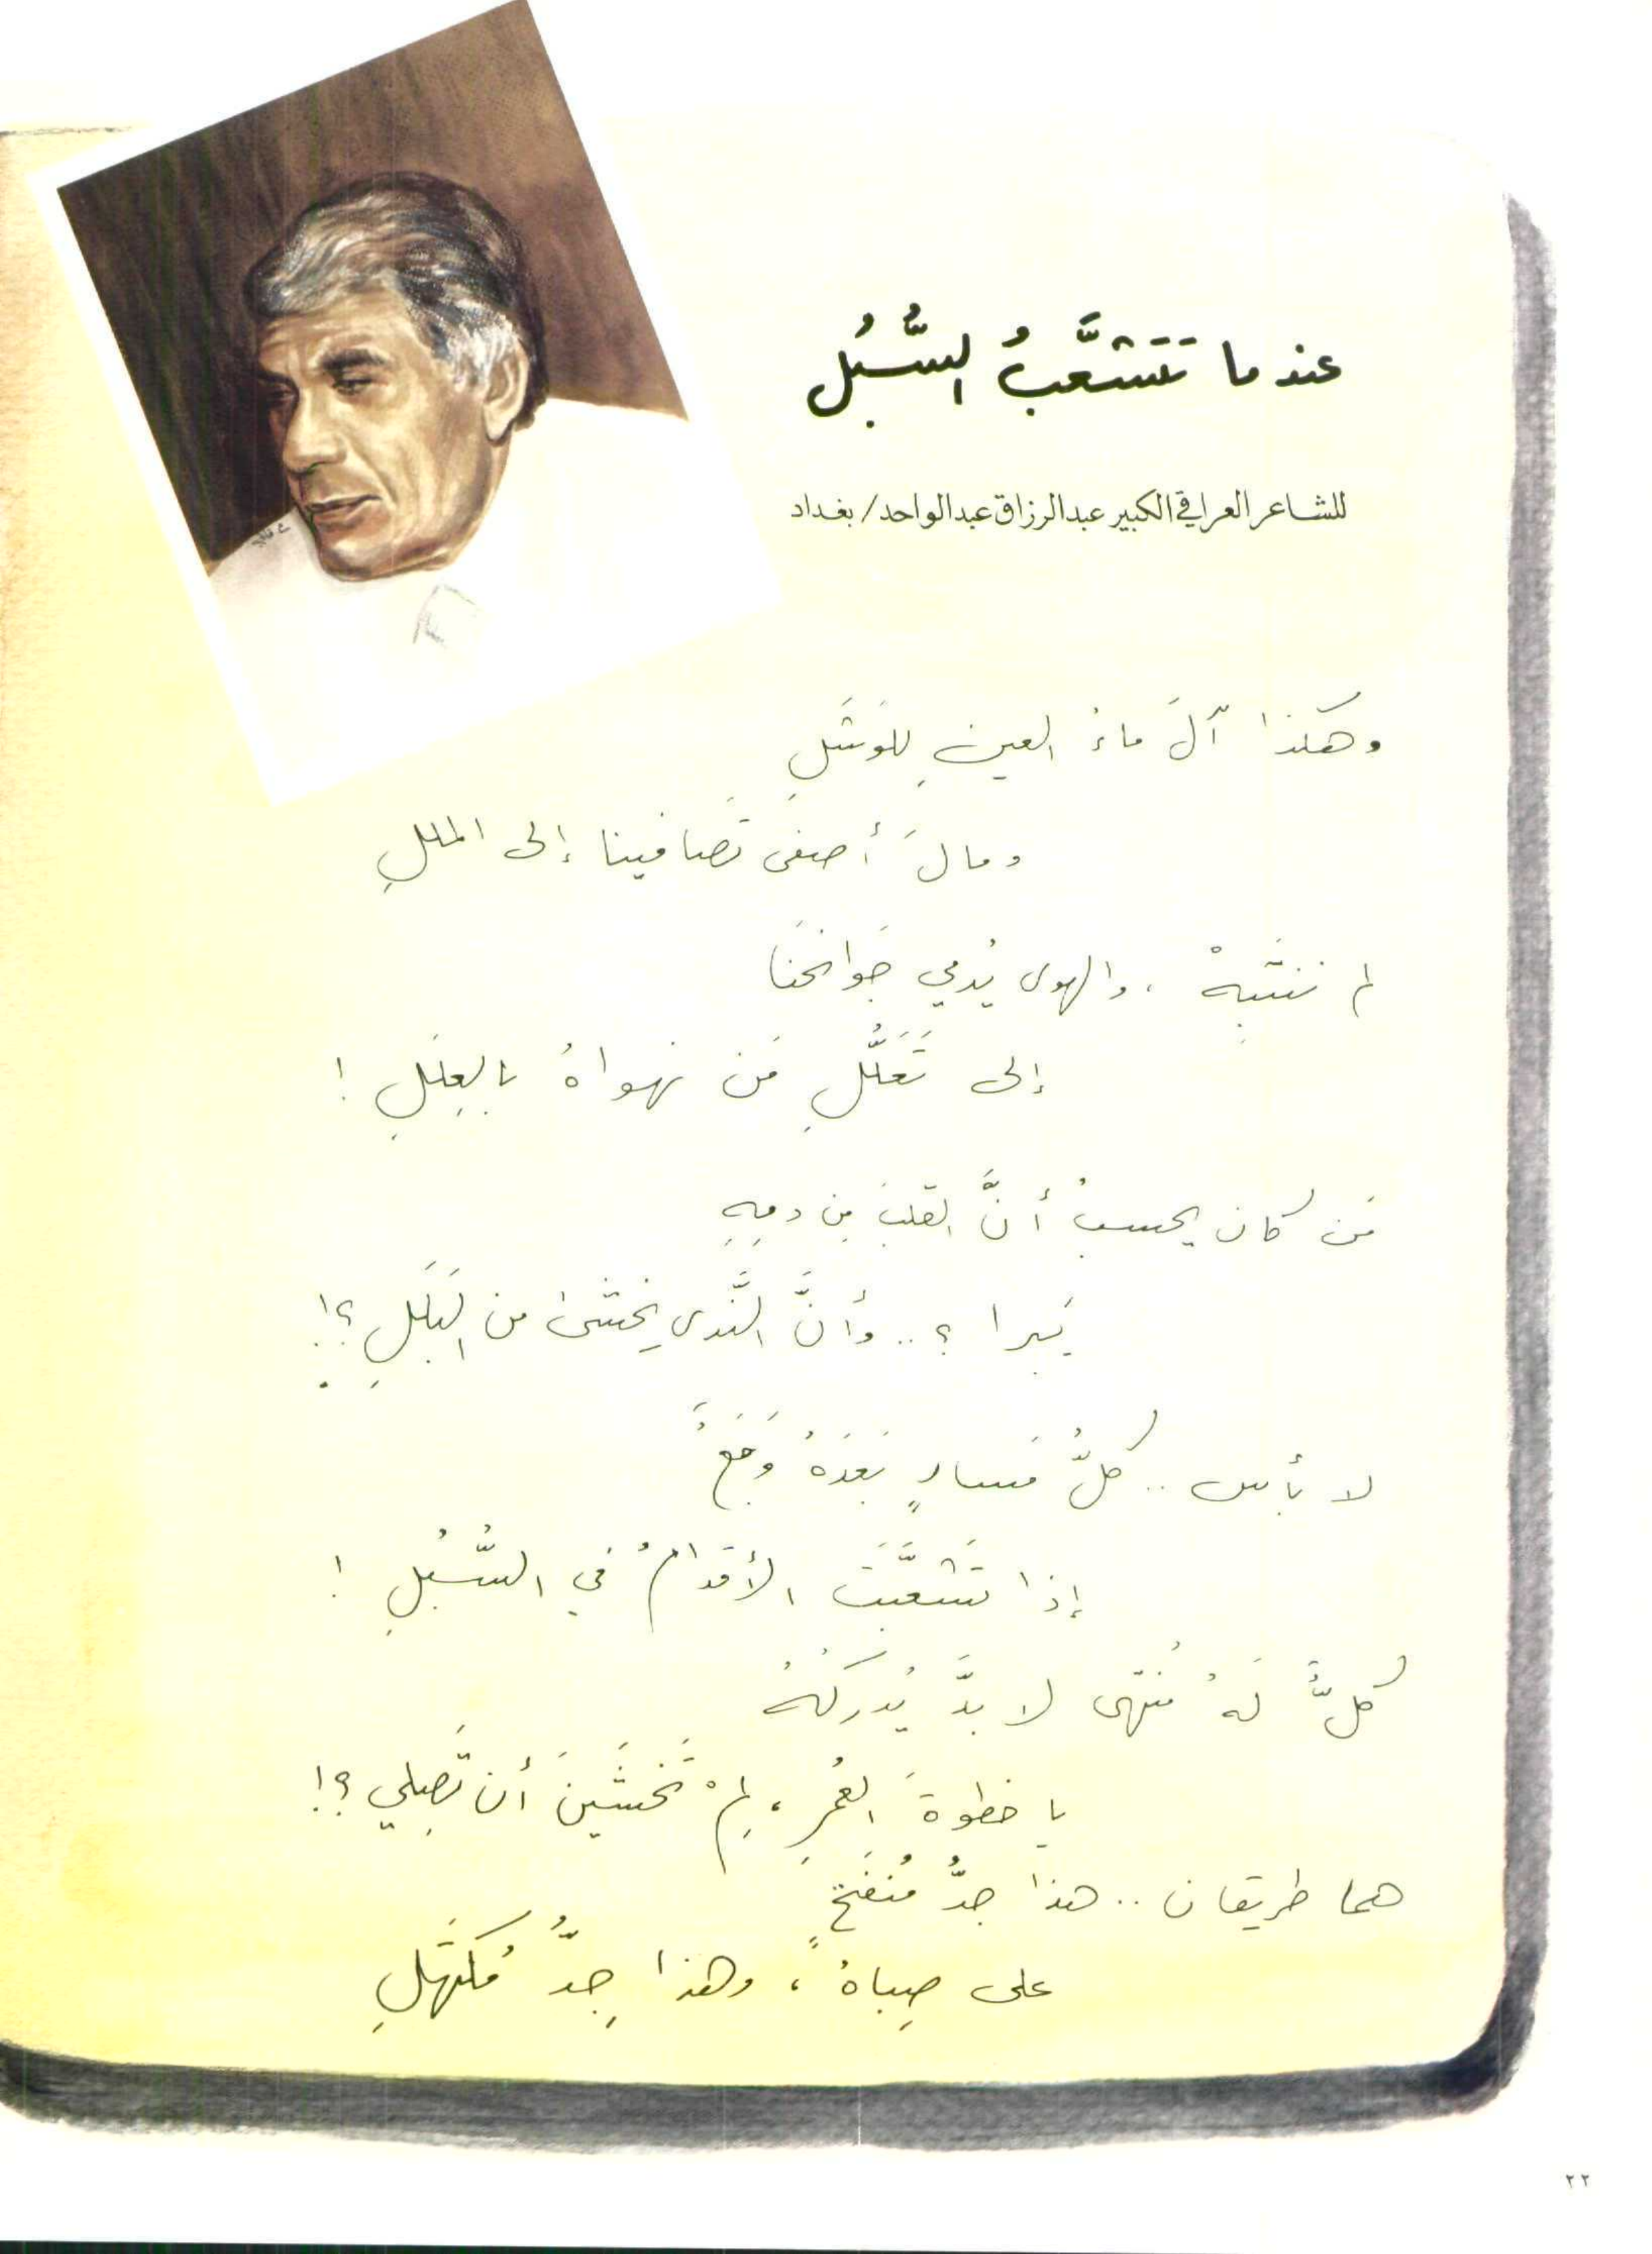 عندما تَتَشعَّبُ السُّبُل
للشاعر العراقي الكبير عبدالرزاق عبدالواحد/ بغداد
وهكذا آلَ ماءُ العينِ للوَشَلِ
ومالَ أصفى تَصافينا إلى المللِ
لم ننتَبِهْ ، والهوى يُدمي جَوانحَنا
إلى تَعَلُّلِ مَن نهواهُ بالعِلَلِ !
مَن كان يحسبُ أنَّ القلبَ مِن دمِهِ
يَبرا ؟ .. وأنَّ النَّدى يَخشى من البَلَلِ ؟!
لا بأس .. كلُّ مَسارٍ بَعدَهُ وَجَعٌ
إذا تَشَعَّبَت الأقدامُ في السُّبُلِ !
كلٌّ لَهُ مُنتهى لا بدَّ يُدركُهُ
يا خطوةَ العُمرِ ، لِمْ تَخشَينَ أن تَصِلي ؟!
هما طريقان .. هذا جِدُّ مُنفَتِحٍ
على صِباهُ ، وهذا جِدُّ مُكتَهِلِ
٢٢